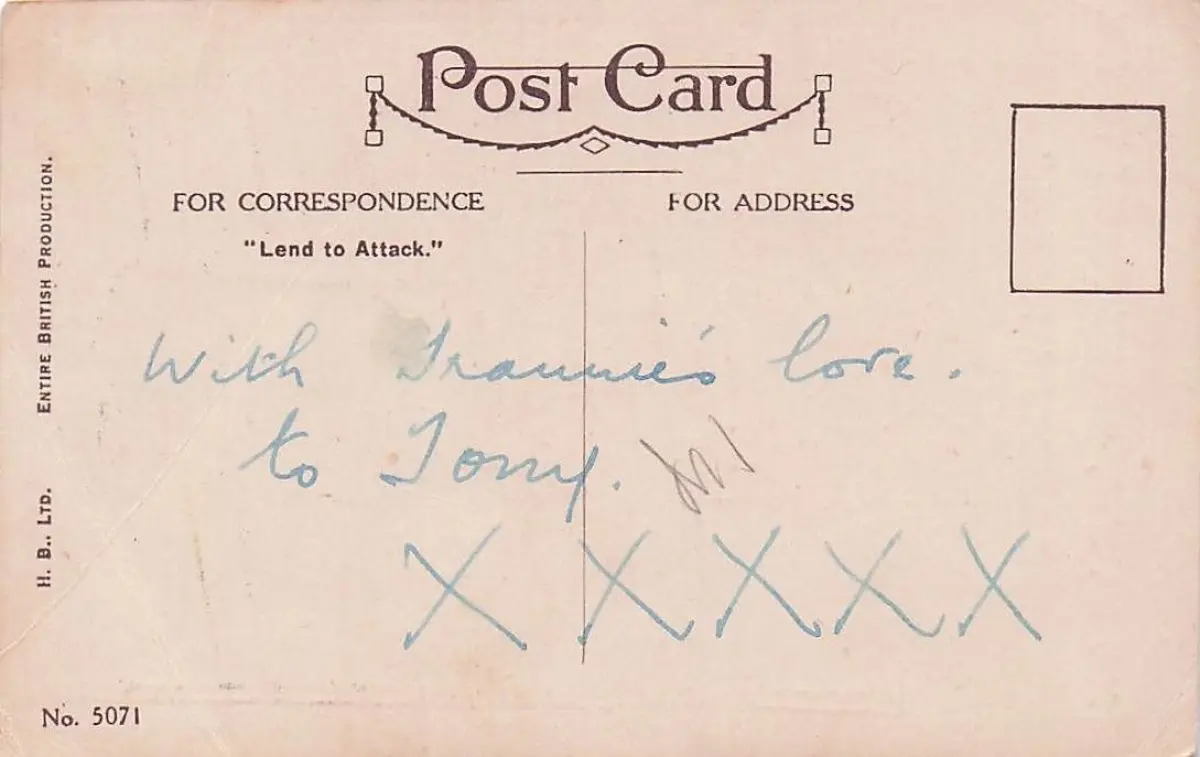 Post Card
FOR CORRESPONDENCE
FOR ADDRESS
"Lend to Attack."
With Frannie's love.
to Tony.
X X X X X
H. B., LTD. ENTIRE BRITISH PRODUCTION.
No. 5071